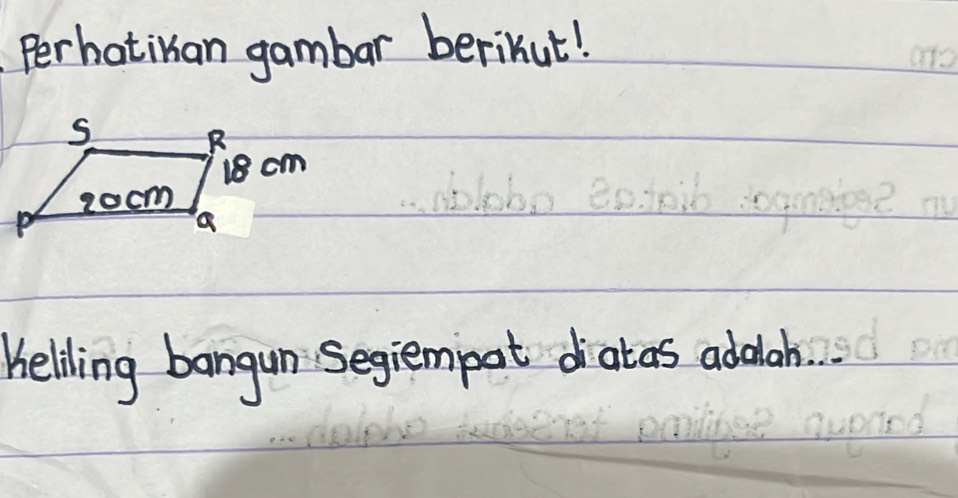 Perhatikan gambar berikut!
S R
18 cm
20cm
P Q
Keliling bangun Segiempat diatas adalah...